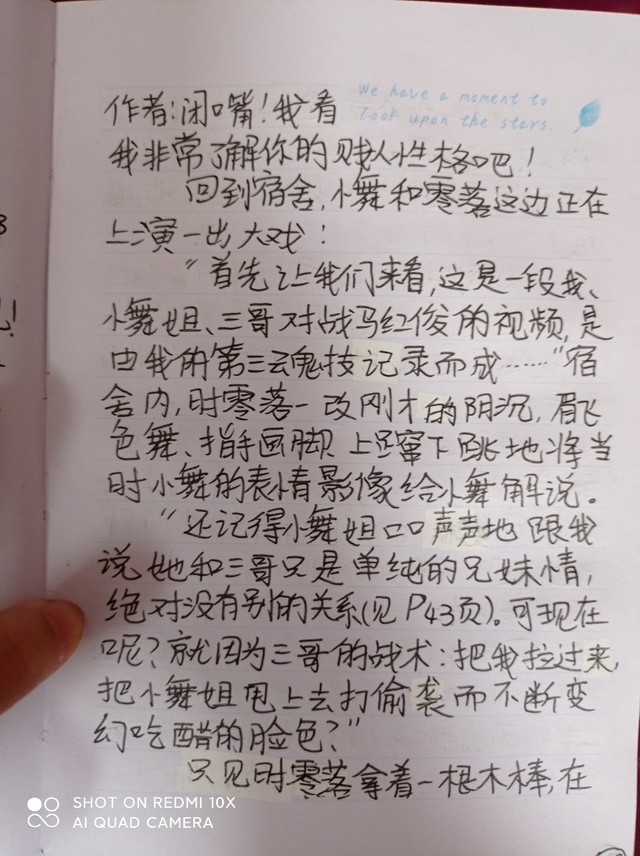 We have a moment to
look upon the stars.
作者:闭嘴!我看
我非常了解你的贱人性格吧!
回到宿舍,小舞和零落这边正在
上演一出大戏:
“首先让我们来看,这是一段我、
小舞姐、三哥对战马红俊的视频,是
由我的第三魂技记录而成……”宿
舍内,时零落一改刚才的阴沉,眉飞
色舞、指手画脚上蹿下跳地将当
时小舞的表情影像给小舞解说。
“还记得小舞姐口口声声地跟我
说她和三哥只是单纯的兄妹情,
绝对没有别的关系(见P43页)。可现在
呢?就因为三哥的战术:把我拉过来,
把小舞姐甩上去打偷袭而不断变
幻吃醋的脸色?”
只见时零落拿着一根木棒,在
SHOT ON REDMI 10X
AI QUAD CAMERA